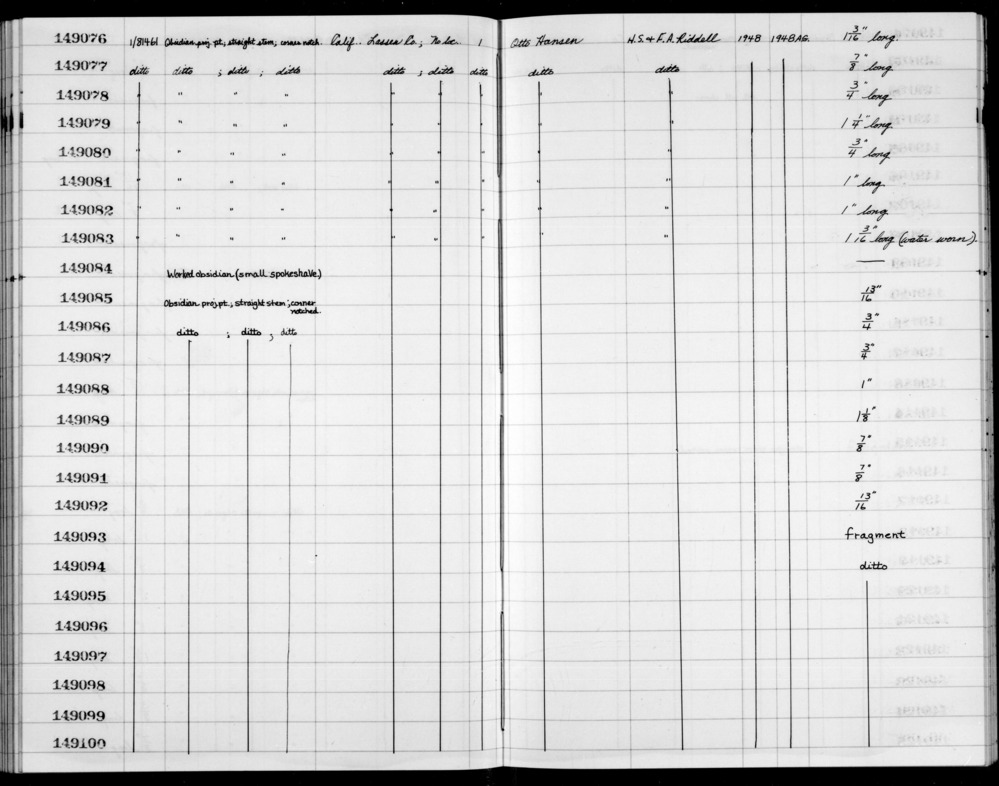 149076 1/81461 Obsidian proj. pt., straight stem, corner notch. Calif. Lassen Co.; No loc. 1 Otto Hansen H.S. & F.A. Riddell 1948 1948 AG. 1 3/16" long.
149077 ditto ditto ; ditto ; ditto ditto ; ditto ditto ditto ditto 7/8" long
149078 " " " " " " " " " 3/4" long
149079 " " " " " " " " " 1 1/4" long.
149080 " " " " " " " " " 3/4" long.
149081 " " " " " " " " " 1" long.
149082 " " " " " " " " " 1" long
149083 " " " " " " " " " 1 3/16" long (water worn).
149084 Worked obsidian (small spokeshave) —
149085 Obsidian proj. pt., straight stem; corner notched. 13/16"
149086 ditto ; ditto , ditto 3/4"
149087 3/4"
149088 1"
149089 1 1/8"
149090 7/8"
149091 7/8"
149092 13/16"
149093 fragment
149094 ditto
149095
149096
149097
149098
149099
149100